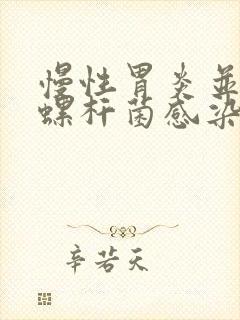 慢性胃炎並
螺杆菌感染
辛若天